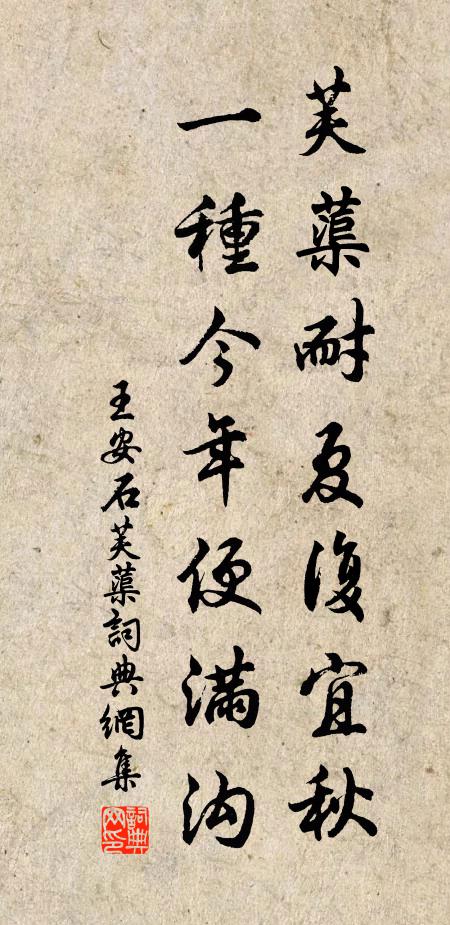 芙蕖耐夏復宜秋
一種今年便滿沟
王安石芙蕖詞典網集
詞典网印